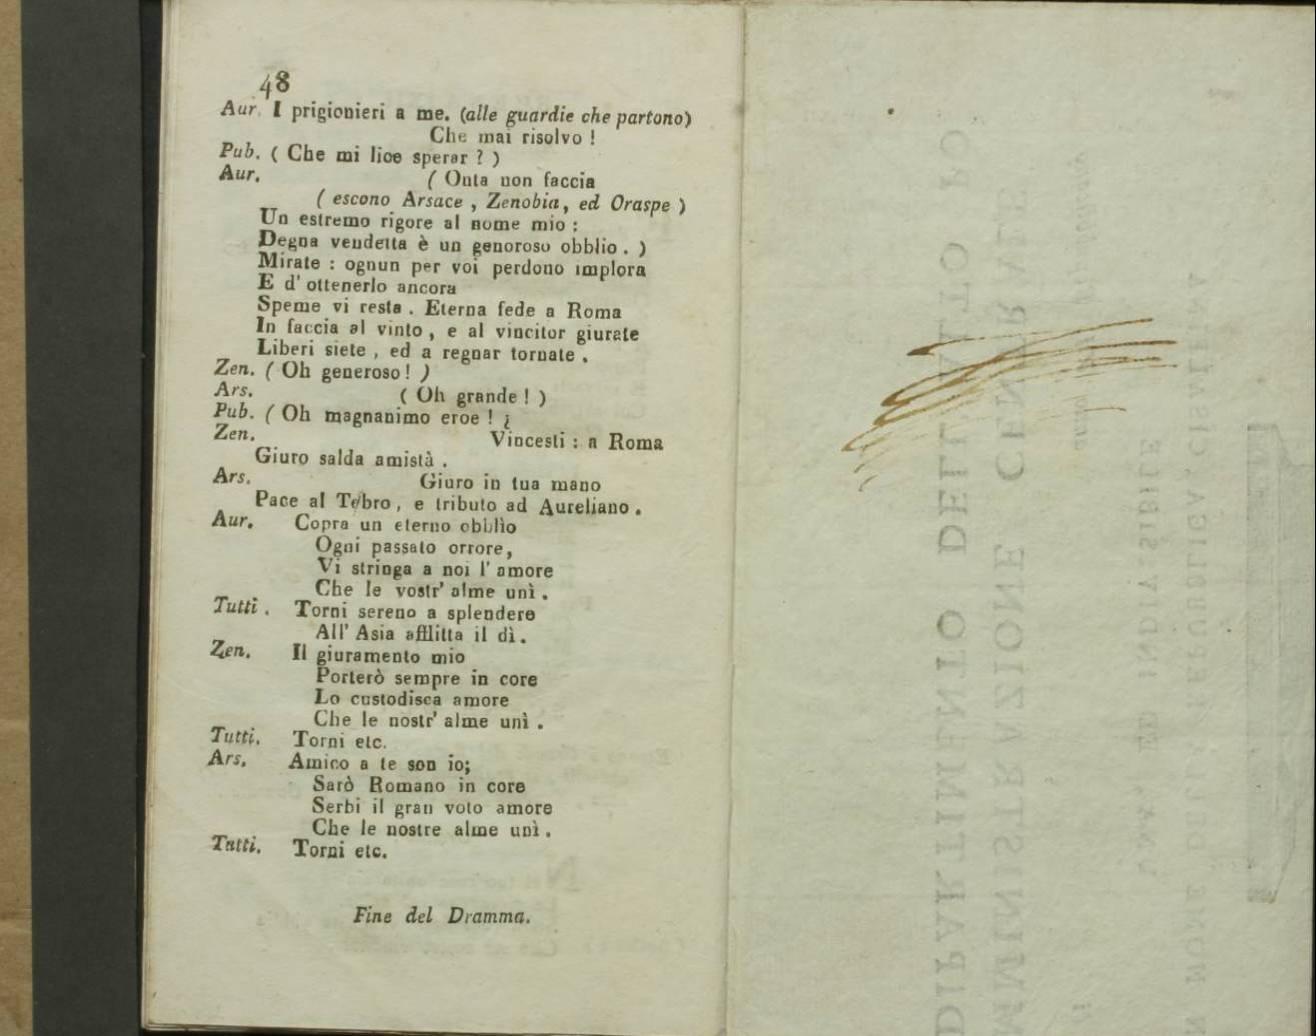 48
Aur. I prigionieri a me. (alle guardie che partono)
Che mai risolvo !
Pub. ( Che mi lice sperar ? )
Aur. ( Onta non faccia
( escono Arsace , Zenobia, ed Oraspe )
Un estremo rigore al nome mio :
Degna vendetta è un genoroso obblio . )
Mirate : ognun per voi perdono implora
E d' ottenerlo ancora
Speme vi resta . Eterna fede a Roma
In faccia al vinto , e al vincitor giurate
Liberi siete , ed a regnar tornate .
Zen. ( Oh generoso ! )
Ars. ( Oh grande ! )
Pub. ( Oh magnanimo eroe ! ¿
Zen. Vincesti : a Roma
Giuro salda amistà .
Ars. Giuro in tua mano
Pace al Tebro , e tributo ad Aureliano .
Aur. Copra un eterno obblìo
Ogni passato orrore,
Vi stringa a noi l' amore
Che le vostr' alme unì .
Tutti . Torni sereno a splendere
All' Asia afflitta il dì .
Zen. Il giuramento mio
Porterò sempre in core
Lo custodisca amore
Che le nostr' alme unì .
Tutti. Torni etc.
Ars. Amico a te son io;
Sarò Romano in core
Serbi il gran voto amore
Che le nostre alme unì .
Tutti. Torni etc.
Fine del Dramma.
DIPARTIMENTO DELL'ALTO PO
AMMINISTRAZIONE CENTRALE